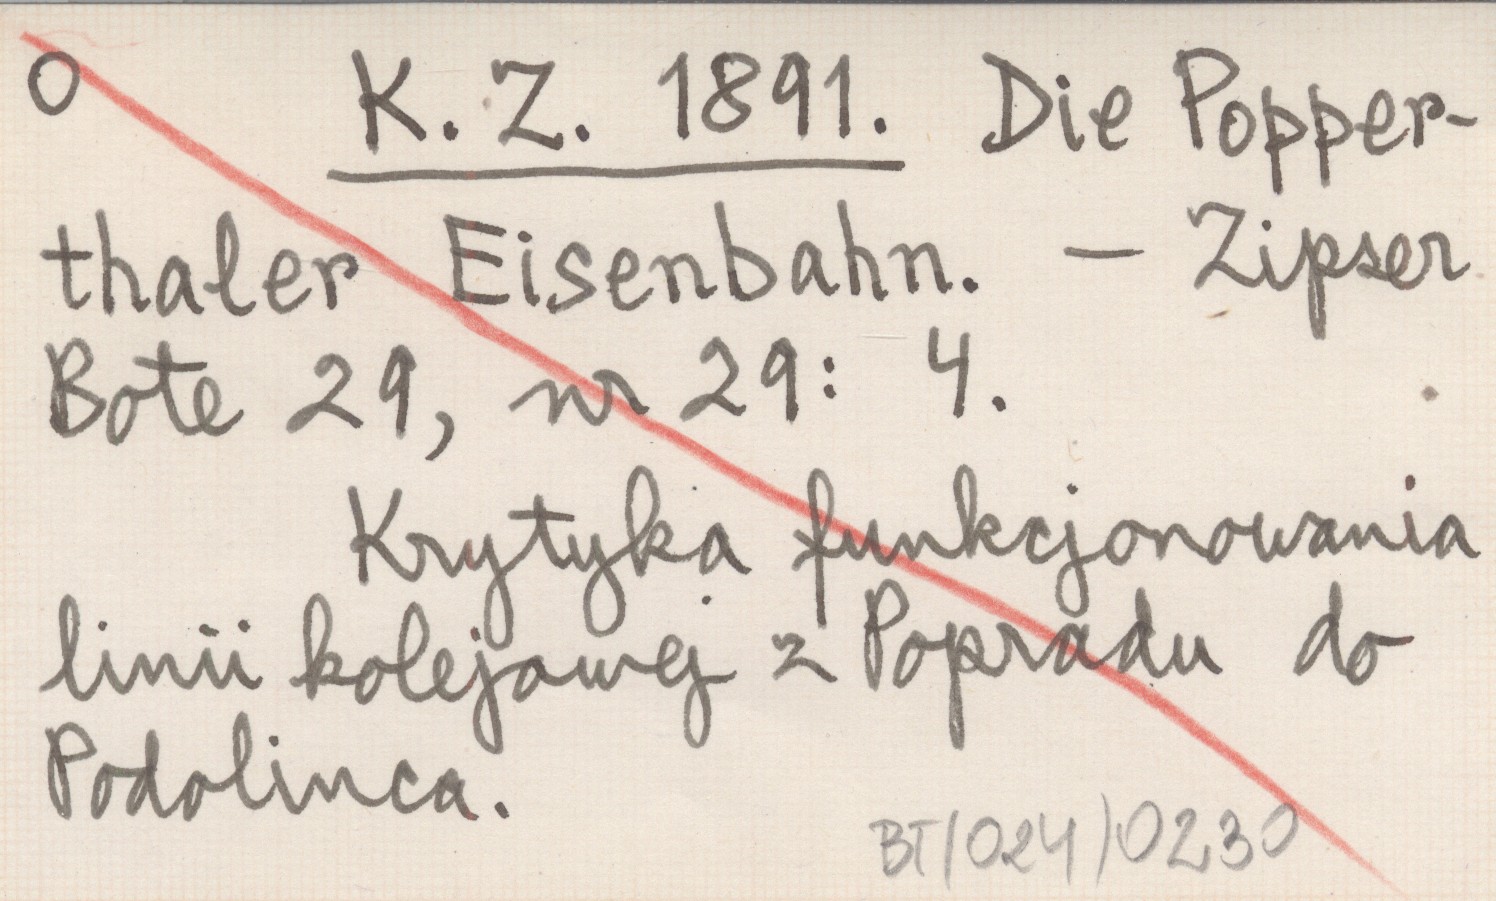 O K. Z. 1891. Die Popper-
thaler Eisenbahn. — Zipser
Bote 29, nr 29: 4.
Krytyka funkcjonowania
linii kolejowej z Popradu do
Podolinca.
BT/024/0230